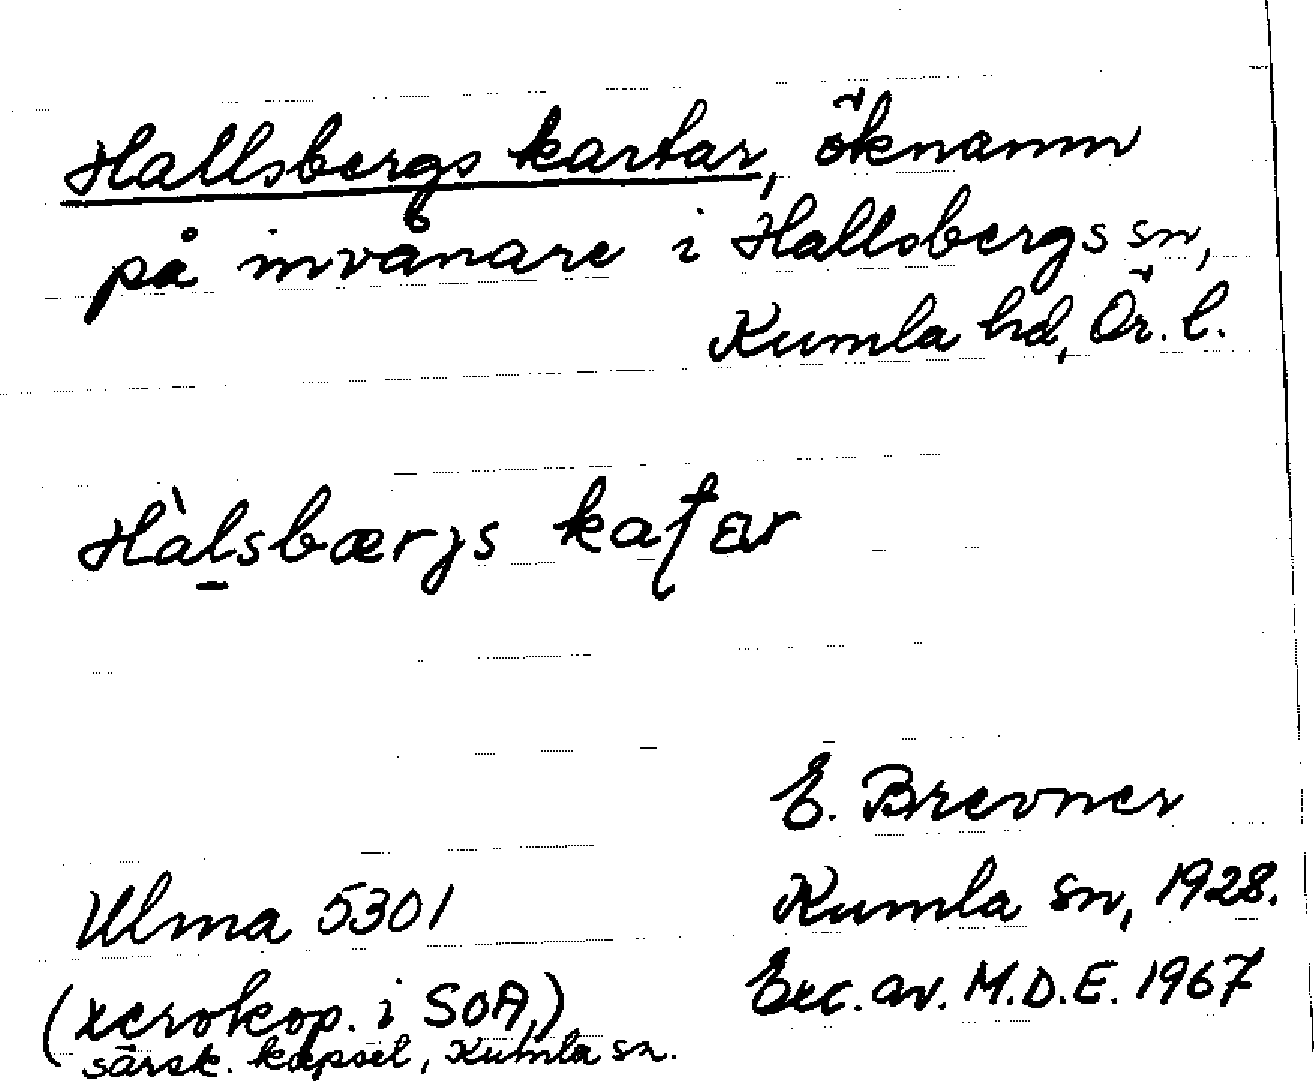 Hallsbergs kartar, öknamn
på invånare i Hallsbergs sn,
Kumla hd, Ör. l.
Hàlsbærjs
E. Brevner
Ulma 5301
Kumla sn, 1928.
Exc. av. M.D.E. 1967
(xerokop. i SOA,)
särsk. kapsel, Kumla sn.